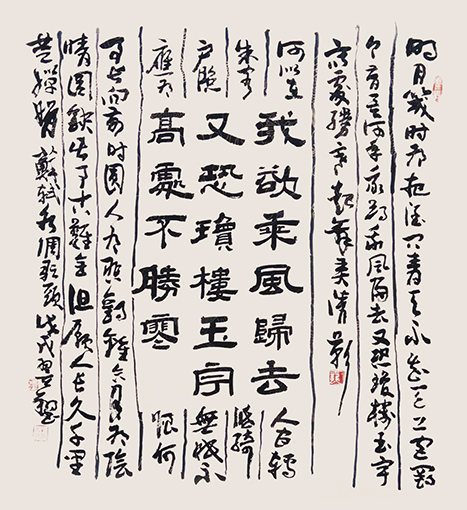 明月幾时有把酒问青天不知天上宫阙
今夕是何年我欲乘風归去又恐瓊樓玉宇
高處勝寒起舞弄清影
何似在
人间轉
朱阁
低绮
户照
無眠不
應有
恨何
我欲乘風歸去
又恐瓊樓玉宇
高處不勝寒
事长向别时圆人有悲歡離合月有陰
晴圆缺此事古難全但願人长久千里
共嬋娟蘇軾水调歌頭戊戌